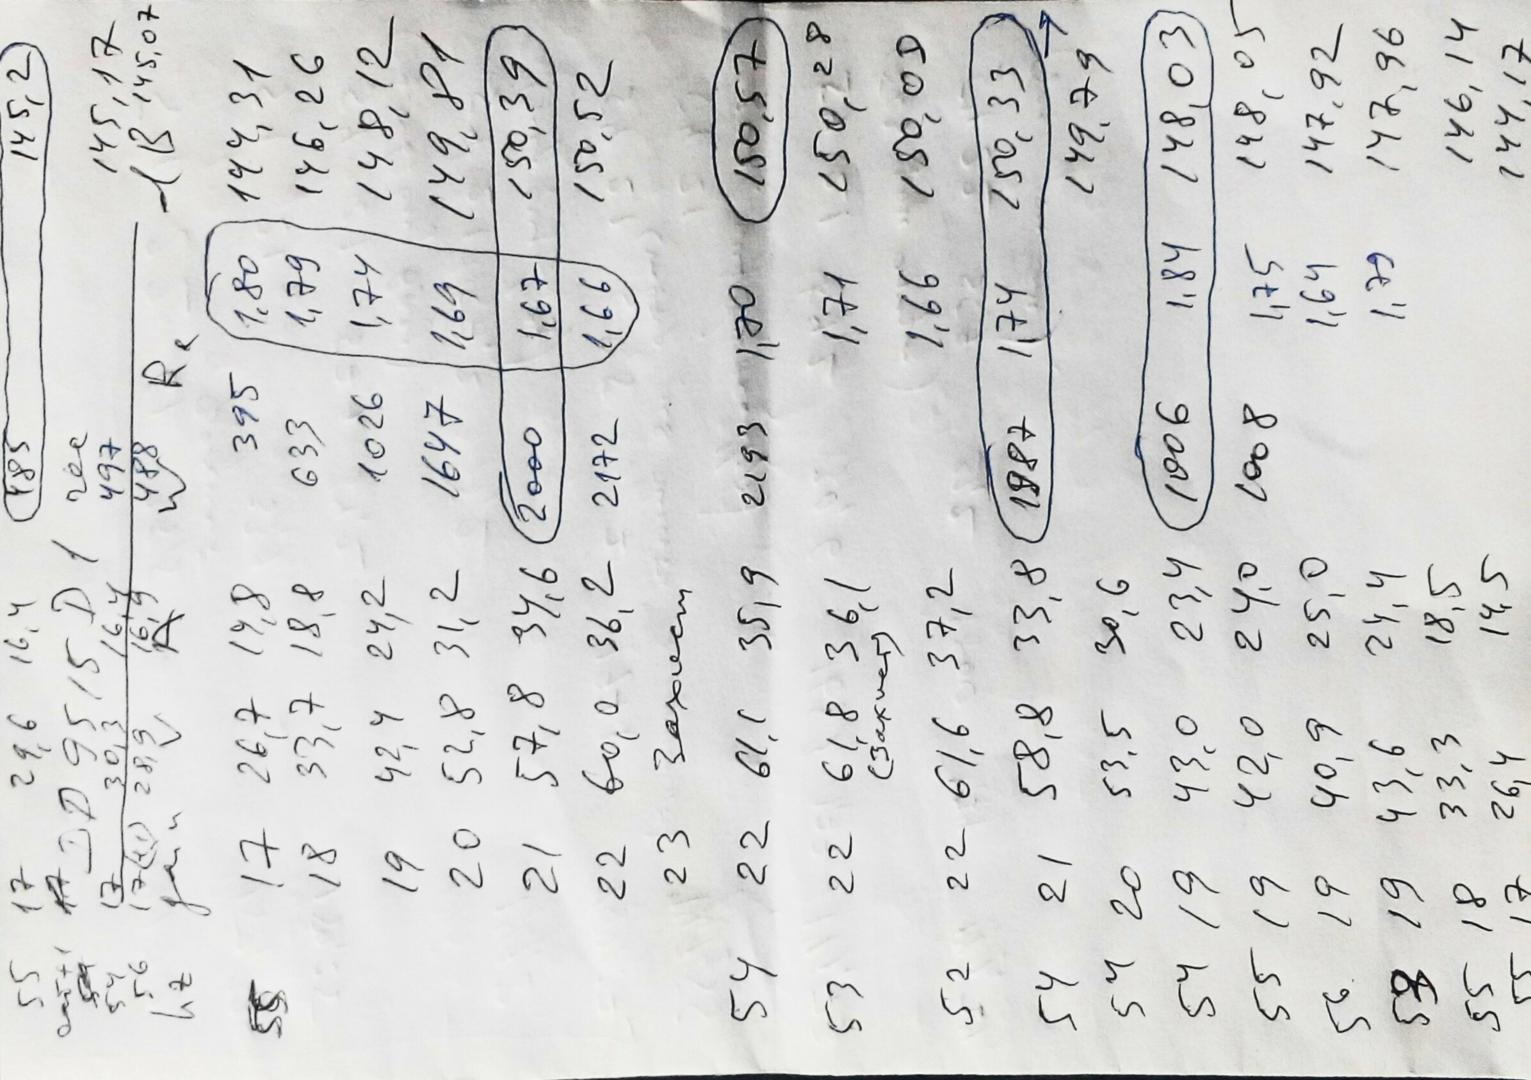 55 17 29,6 16,4 485 145,2
DD 9515 D1
54 17 30,3 16,4 497 145,17
56 17(1) 28,9 16,9 488 145,07
hz V A W R
55 17 26,7 14,8 395 1,80 144,31
18 33,7 18,8 633 1,79 146,26
19 42,4 24,2 1026 1,74 148,12
20 52,8 31,2 1647 1,69 149,81
21 57,8 34,6 2000 1,67 150,39
22 60,0 36,2 2172 1,66 150,52
23 Захлест
54 22 61,1 35,9 2193 1,70 150,57
53 22 61,8 36,1 1,71 150,28
(Захлест)
52 22 61,6 37,2 1,66 150,05
54 21 58,8 33,8 1987 1,74 150,33 →
54 20 53,5 30,6 149,79
54 19 43,0 23,4 1006 1,84 148,03
55 19 42,0 24,0 1008 1,75 148,05
56 19 40,9 25,0 1,64 147,92
19 43,6 24,4 1,79 147,96
55 18 33,3 18,5 146,14
55 17 26,4 14,5 144,17